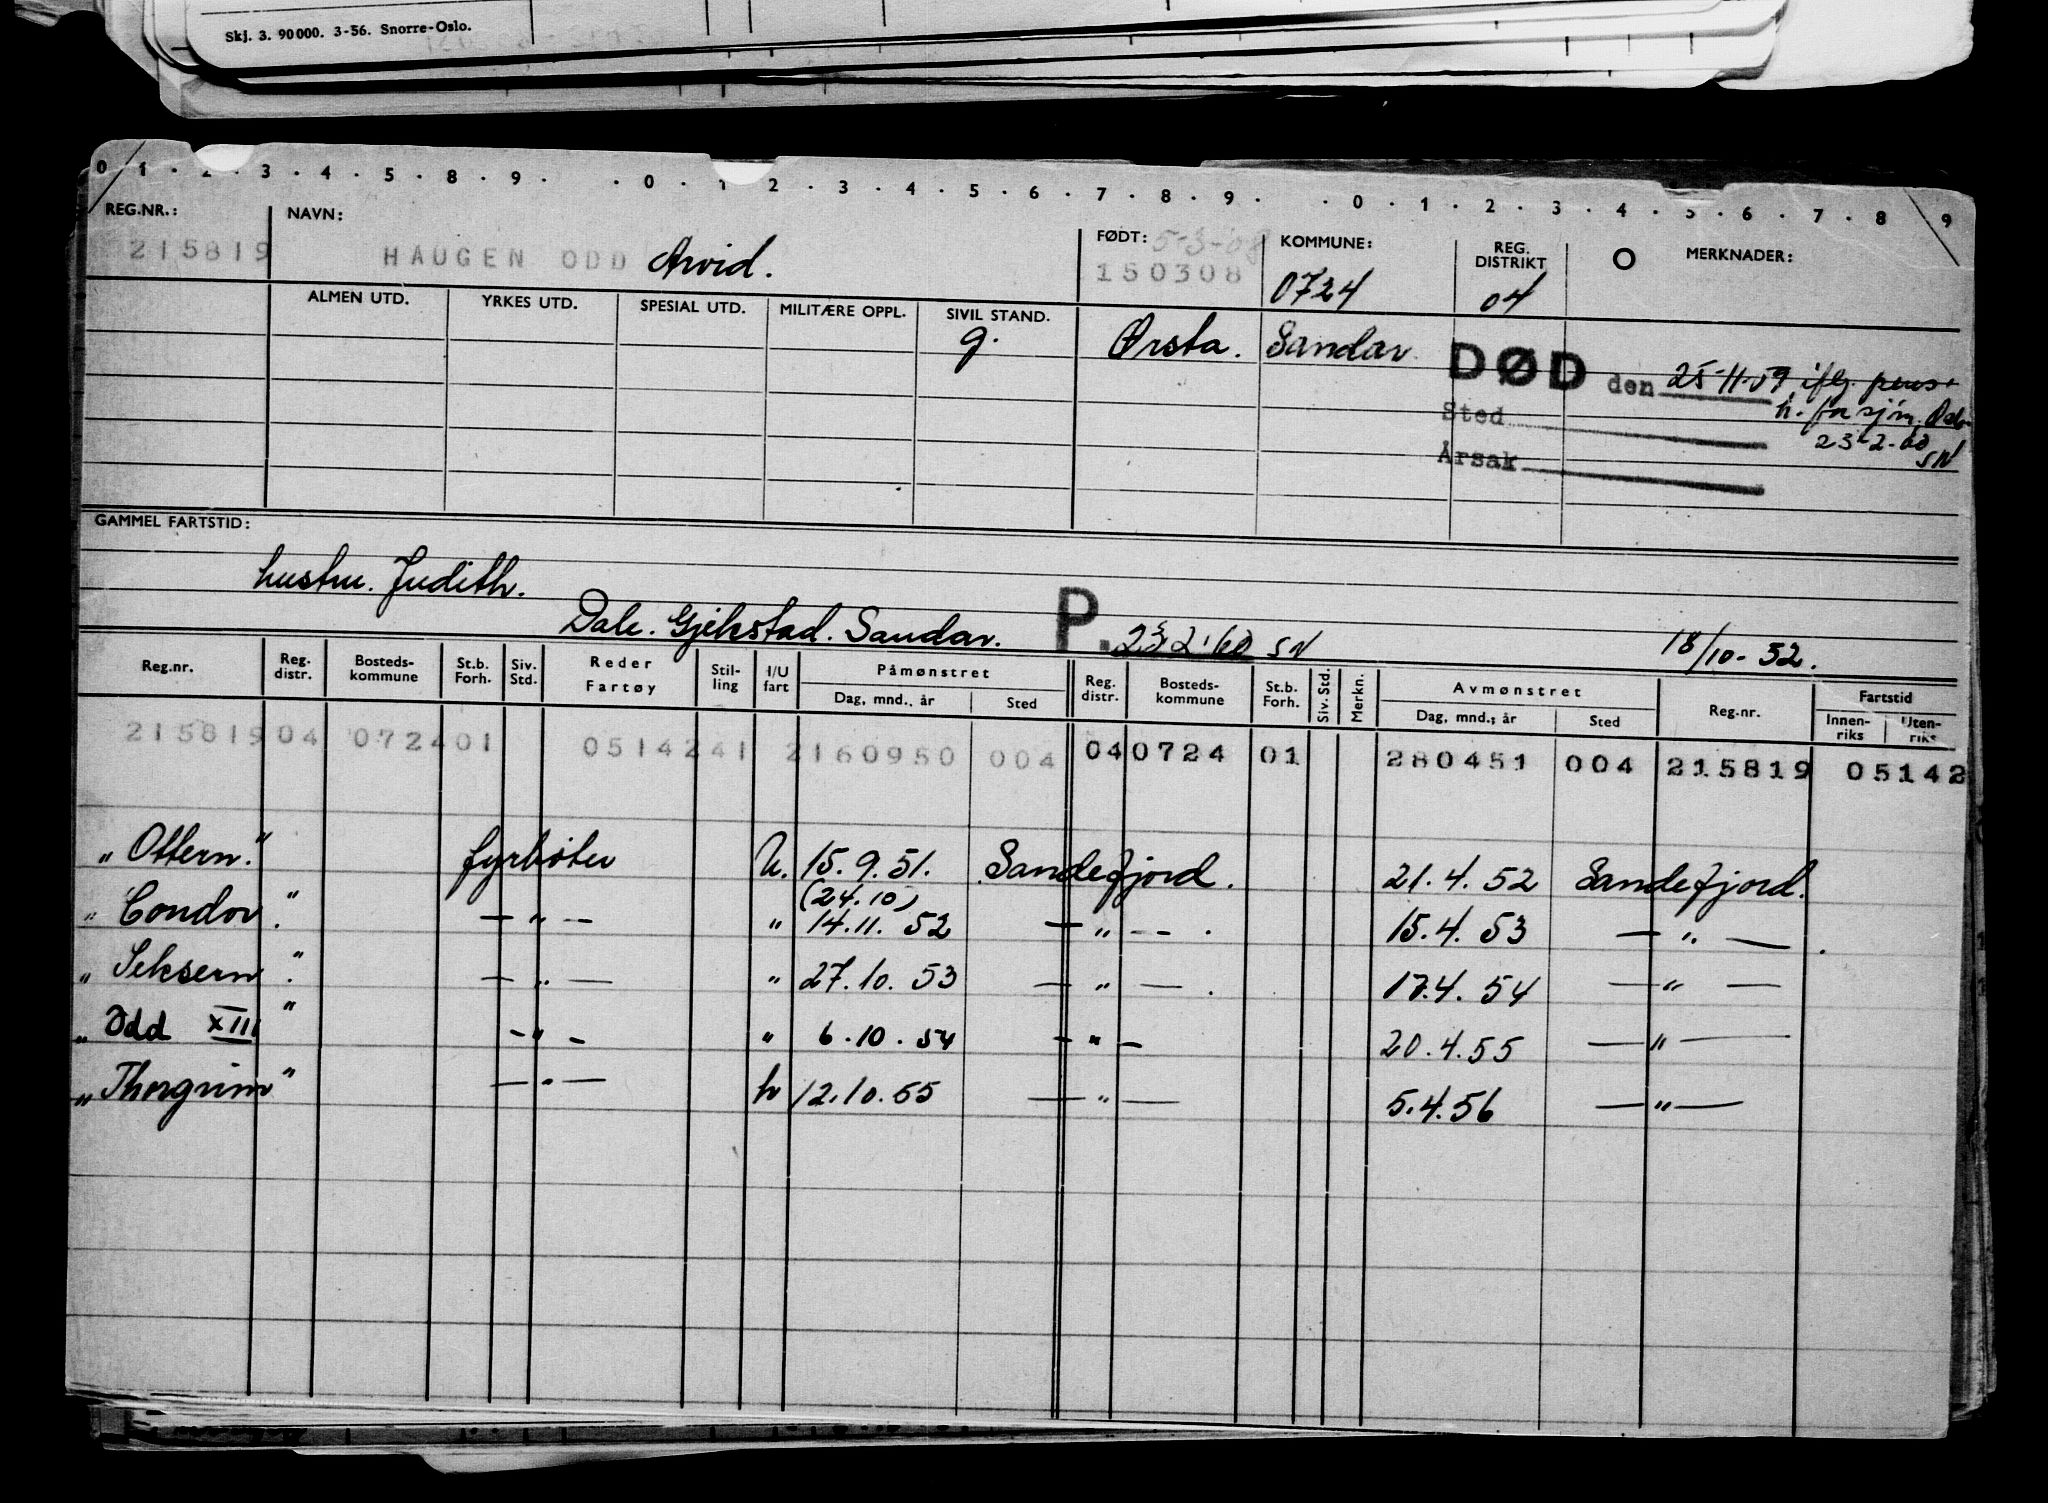 Skj. 3. 90 000. 3-56. Snorre-Oslo.
0 1 · 2 · 3 · 4 · 5 · 8 · 9 · · 0 · 1 2 · 3 · 4 · 5 · 6 · 7 · 8 · 9 · · 0 · 1 · 2 · 3 · 4 · 5 · 6 · 7 · 8 9
REG.NR.: NAVN: FØDT: 5-3-08 KOMMUNE: REG. DISTRIKT MERKNADER:
215819 HAUGEN ODD Arvid. 150308 0724 04
ALMEN UTD. YRKES UTD. SPESIAL UTD. MILITÆRE OPPL. SIVIL STAND.
g. Ørsta. Sandar
DØD den 25-11-59 iflg. pens.
h. for sjm. Oslo
Sted 23-2-60
Årsak SN
GAMMEL FARTSTID:
hustru. Judith.
Dale. Gjekstad. Sandar. P. 23.2.60 SN 18/10-52.
Reg.nr. Reg. distr. Bosteds- kommune St.b. Forh. Siv. Std. Reder Fartøy Stil- ling I/U fart Påmønstret Dag, mnd., år Sted Reg. distr. Bosteds- kommune St.b. Forh. Siv. Std. Merkn. Avmønstret Dag, mnd., år Sted Reg.nr. Fartstid Innen- riks Uten- riks
215819 04 0724 01 0514241 2160950 004 04 0724 01 280451 004 215819 05142
„Ottern." fyrbøter U. 15.9.51. Sandefjord. 21.4.52 Sandefjord.
(24.10)
„Condor." — „ — „ 14.11.52 — „ — - . 15.4.53 — „ — .
„Seksern." — „ — „ 27.10.53 — „ — . 17.4.54 — „ —
„Odd XIII" - „ - „ 6.10.54 - „ - 20.4.55 — „ —
„Thorgrim" — „ — h 12.10.55 — „ — 5.4.56 — „ —